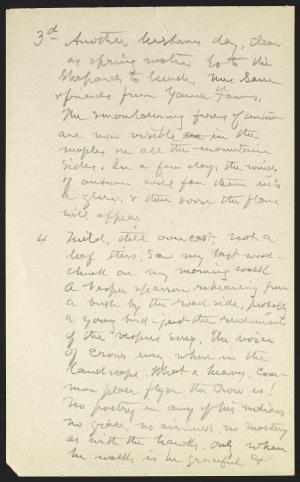 3d Another lustrous day, clear
as spring water. Go to the
Shepards to lunch, Mrs Sage
& friends from Yama Farms.
The smouldering fires of autumn
are now visible in the
maples on all the mountain
sides. In a few days the winds
of autumn will fan them into
a glow, & then soon the flame
will appear.
4 Mild, still overcast, not a
leaf stirs. Saw my last wood-
chuck on my morning walk
A vesper sparrow rehearsing from
a bush by the road side, probably
a young bird - just the rudiments
of the vespers song. The voice
of crows every where in the
landscape. What a heavy, com-
mon place flyer the crow is!
No poetry in any of his motions
no grace, no airiness, no mastery
as with the hawks. Only when
he walks is he graceful &